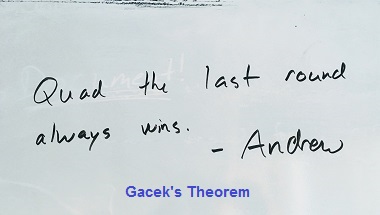 Quad the last round
always wins.
- Andrew
Gacek's Theorem